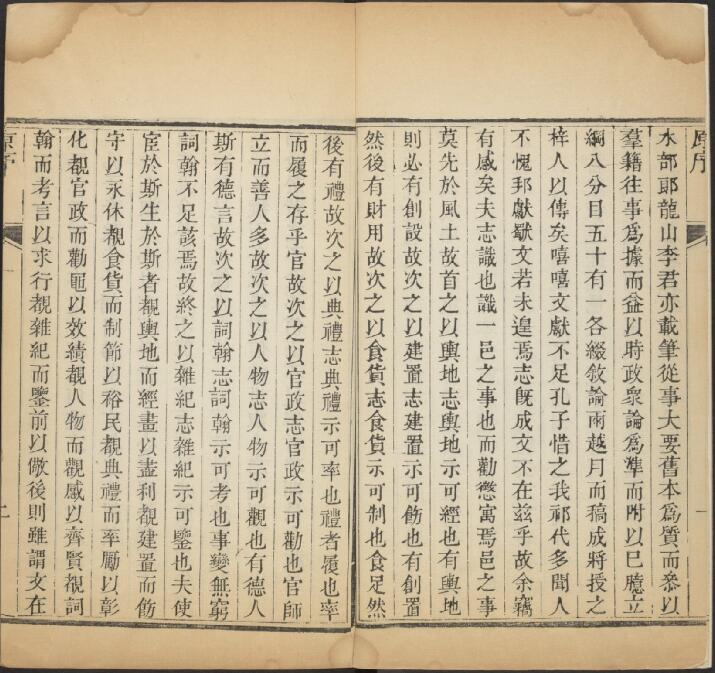 原序
水部郎龍山李君亦載筆從事大要舊本爲質而叅以
羣籍往事爲據而益以時政衆論爲凖而附以巳臆立
綱八分目五十有一各綴敘論兩越月而稿成將授之
梓人以傳矣嘻嘻文獻不足孔子惜之我祁代多聞人
不愧邦獻獨文若未遑焉志旣成文不在茲乎故余竊
有感矣夫志識也識一邑之事也而勸懲寓焉邑之事
莫先於風土故首之以輿地志輿地示可經也有輿地
則必有創設故次之以建置志建置示可飭也有創置
然後有財用故次之以食貨志食貨示可制也食足然
一
後有禮故次之以典禮志典禮示可率也禮者履也率
而履之存乎官故次之以官政志官政示可勸也官師
立而善人多故次之以人物志人物示可觀也有德人
斯有德言故次之以詞翰志詞翰示可考也事變無窮
詞翰不足該焉故終之以雜紀志雜紀示可鑒也夫使
宦於斯生於斯者觀輿地而經畫以盡利觀建置而飭
守以永休觀食貨而制節以裕民觀典禮而率勵以彰
化觀官政而勸黽以效績觀人物而觀感以齊賢觀詞
翰而考言以求行觀雜紀而鑒前以儆後則雖謂文在
原序
二